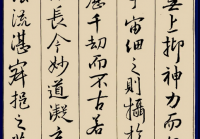 無上抑神力而
宙細之則攝於
歷千劫而不古若
長今妙道凝
流湛寂挹之